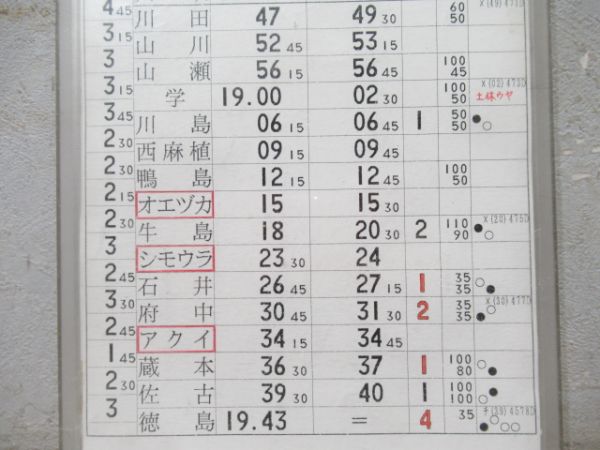 4 45 川田 47 49 30 60 50
3 15 山川 52 45 53 15
3 山瀬 56 15 56 45 100 45 ×(02)473D
3 15 学 19.00 02 30 100 50
3 45 川島 06 15 06 45 1 50 50 ● ○
2 30 西麻植 09 15 09 45
2 30 鴨島 12 15 12 45 100 50
2 15 オエヅカ 15 15 30
2 30 牛島 18 20 30 2 110 90 ×(20)475D ● ○
3 シモウラ 23 30 24
2 45 石井 26 45 27 15 1 35 35 ○ ●
3 30 府中 30 45 31 30 2 35 35 ×(30)477D ○ ●
2 45 アクイ 34 15 34 45
1 45 蔵本 36 30 37 1 100 80 ○ ●
2 30 佐古 39 30 40 1 100 100 ● ○
3 徳島 19.43 = 4 35 チ(39)4578D ● ○ ○